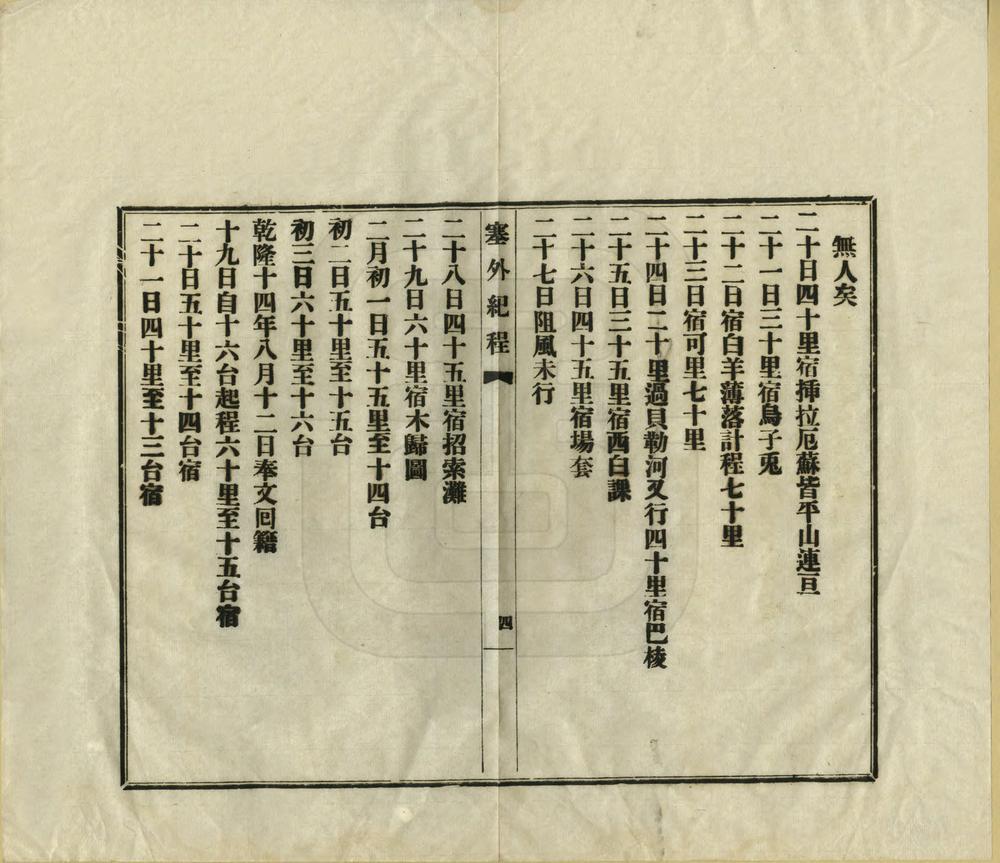 無人矣
二十日四十里宿揷拉厄蘇皆平山連亘
二十一日三十里宿烏子兎
二十二日宿白羊薄落計程七十里
二十三日宿可里七十里
二十四日二十里過貝勒河又行四十里宿巴棱
二十五日三十五里宿西白課
二十六日四十五里宿場套
二十七日阻風未行
塞外紀程
四
二十八日四十五里宿招索灘
二十九日六十里宿木歸圖
二月初一日五十五里至十四台
初二日五十里至十五台
初三日六十里至十六台
乾隆十四年八月十二日奉文回籍
十九日自十六台起程六十里至十五台宿
二十日五十里至十四台宿
二十一日四十里至十三台宿